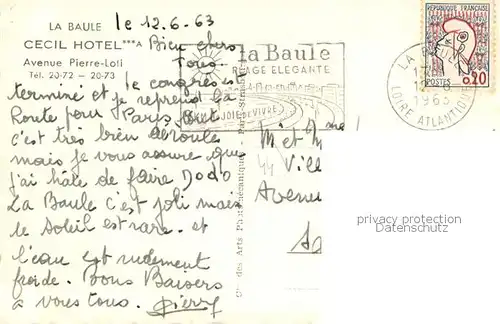 LA BAULE
CECIL HOTEL***A
Avenue Pierre-Loti
Tél. 20-72 - 20-73
le 12.6.63
Bien chers
Tous.
le congrès
terminé et je reprend la
Route pour Paris. tout
c'est très bien déroulé
mais je vous assure que
j'ai hâte de faire Dodo
La Baule c'est joli mais
le soleil est rare. et
l'eau est rudement
froide. Bons Baisers
à vous tous. Pierre
la Baule
PLAGE ELEGANTE
JOIE DE VIVRE
RÉPUBLIQUE FRANÇAISE
0,20
POSTES
LA BAULE
1963
LOIRE ATLANTIQUE
des Arts Photomécaniques
M et Mme
44 Vill
Avenue
privacy protection
Datenschutz